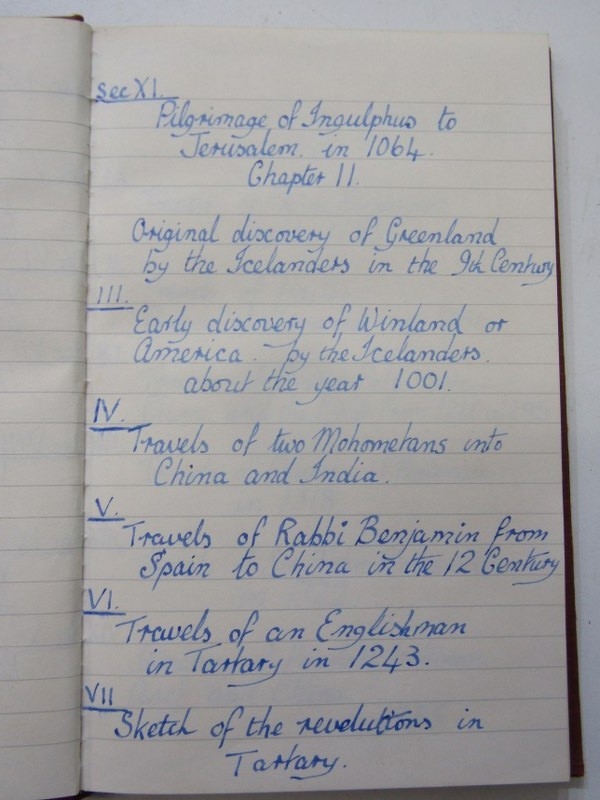 Sec XI.
Pilgrimage of Ingulphus to
Jerusalem. in 1064.
Chapter II.
Original discovery of Greenland
by the Icelanders in the 9th Century
III.
Early discovery of Winland or
America. by the Icelanders.
about the year 1001.
IV.
Travels of two Mohometans into
China and India.
V.
Travels of Rabbi Benjamin from
Spain to China in the 12 Century
VI.
Travels of an Englishman
in Tartary in 1243.
VII
Sketch of the revolutions in
Tartary.